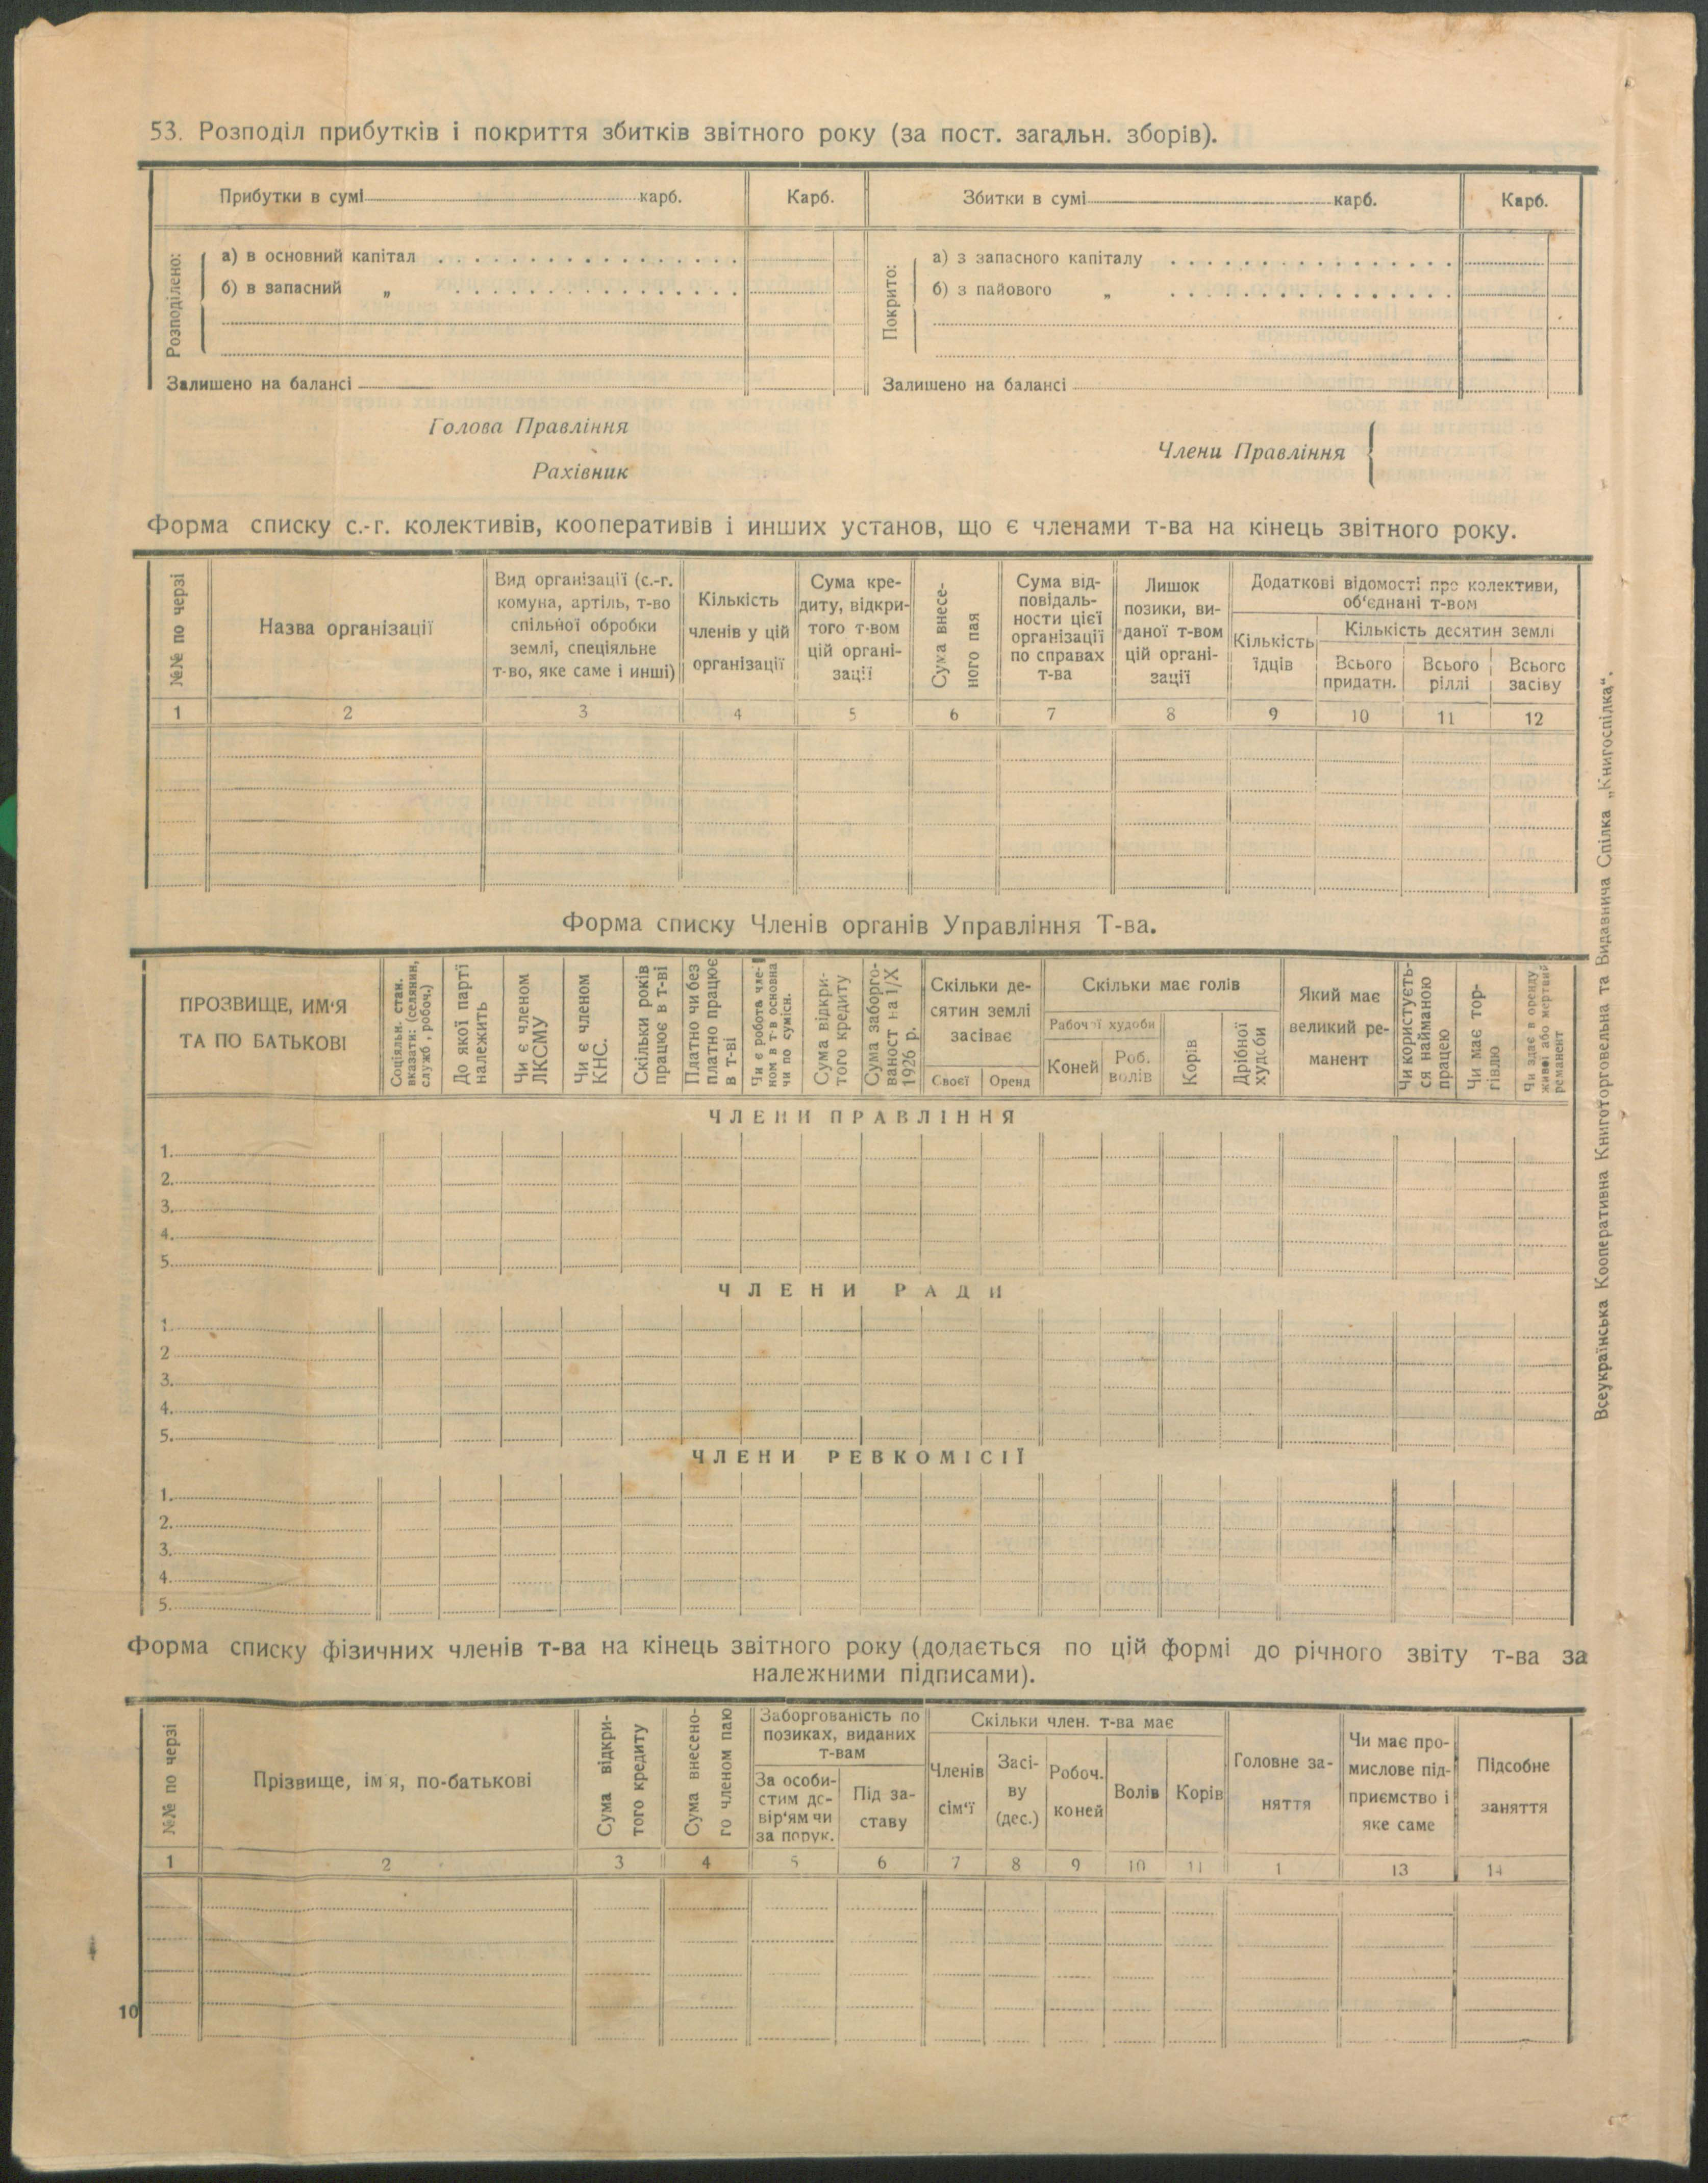 53. Розподіл прибутків і покриття збитків звітного року (за пост. загальн. зборів).
Прибутки в сумі карб.
Карб.
Збитки в сумі карб.
Карб.
Розподілено:
а) в основний капітал
б) в запасний „
Залишено на балансі
Покрито:
а) з запасного капіталу
б) з пайового „
Залишено на балансі
Голова Правління
Рахівник
Члени Правління
Форма списку с.-г. колективів, кооперативів і инших установ, що є членами т-ва на кінець звітного року.
№№ по черзі
Назва організації
Вид організації (с.-г.
комуна, артіль, т-во
спільної обробки
землі, спеціяльне
т-во, яке саме і инші)
Кількість
членів у цій
організації
Сума кре-
диту, відкри-
того т-вом
цій органі-
зації
Сума внесе-
ного пая
Сума від-
повідаль-
ности цієї
організації
по справах
т-ва
Лишок
позики, ви-
даної т-вом
цій органі-
зації
Додаткові відомості про колективи,
об'єднані т-вом
Кількість
їдців
Кількість десятин землі
Всього
придатн.
Всього
ріллі
Всього
засіву
1 2 3 4 5 6 7 8 9 10 11 12
Форма списку Членів органів Управління Т-ва.
ПРОЗВИЩЕ, ИМ'Я
ТА ПО БАТЬКОВІ
Соціяльн. стан.
вказати: (селянин,
служб, робоч.)
До якої парті
належить
Чи є членом
ЛКСМУ
Чи є членом
КНС.
Скільки років
працює в т-ві
Платно чи без
платно працює
в т-ві
Чи є робота чле-
ном в т-в основна
чи по сумісн.
Сума відкри-
того кредиту
Сума заборго-
ваност на 1/X
1926 р.
Скільки де-
сятин землі
засіває
Своєї
Оренд
Скільки має голів
Рабочої худоби
Коней
Роб.
волів
Корів
Дрібної
худоби
Який має
великий ре-
манент
Чи користуєть-
ся найманою
працею
Чи має тор-
гівлю
Чи здає в оренду
живві або мертвий
ремамент
ЧЛЕНИ ПРАВЛІННЯ
1.
2.
3.
4.
5.
ЧЛЕНИ РАДИ
1.
2
3.
4.
5.
ЧЛЕНИ РЕВКОМІСІЇ
1.
2.
3.
4.
5.
Форма списку фізичних членів т-ва на кінець звітного року (додається по цій формі до річного звіту т-ва за
належними підписами).
№№ по черзі
Прізвище, ім я, по-батькові
Сума відкри-
того кредиту
Сума внесено-
го членом паю
Заборгованість по
позиках, виданих
т-вам
За особи-
стим до-
вір'ям чи
за порук.
Під за-
ставу
Скільки член. т-ва має
Членів
сім'ї
Засі-
ву
(дес.)
Робоч.
коней
Волів
Корів
Головне за-
няття
Чи має про-
мислове під-
приємство і
яке саме
Підсобне
заняття
1 2 3 4 5 6 7 8 9 10 11 1 13 14
10
Всеукраїнська Кооперативна Книготорговельна та Видавнича Спілка „Книгоспілка“.